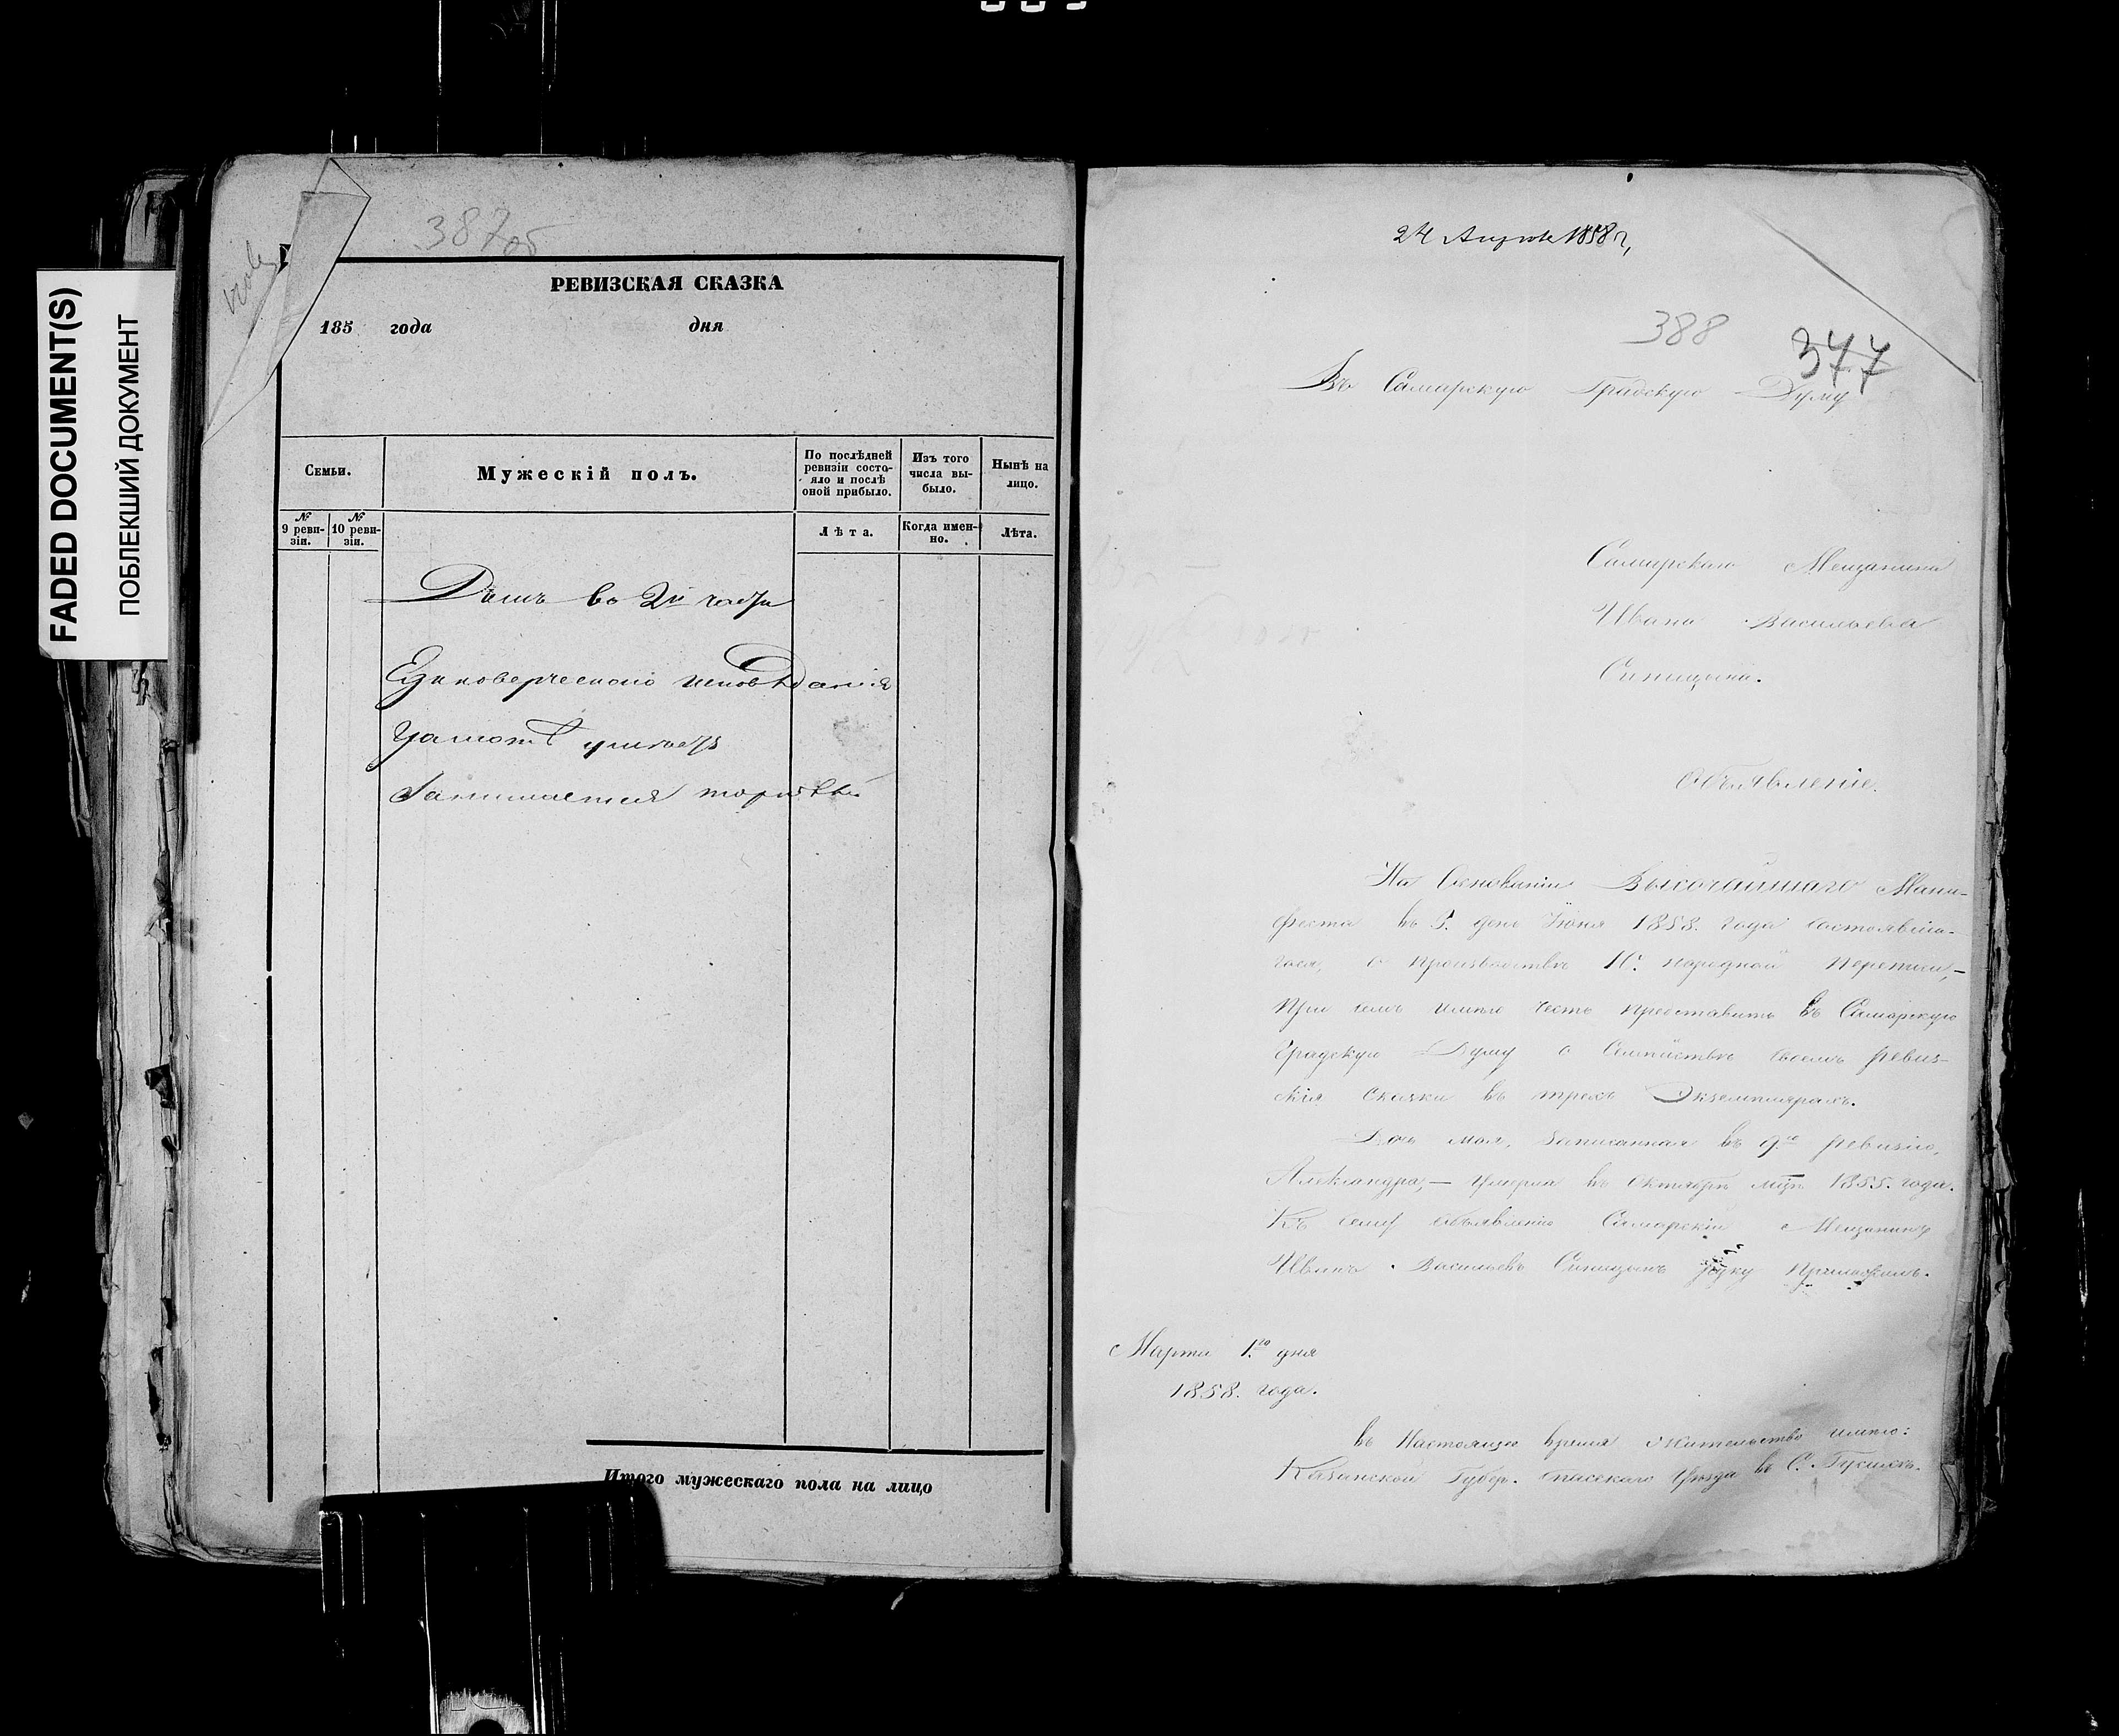 FADED DOCUMENT(S)
ПОБЛЕКШИЙ ДОКУМЕНТ
387об
РЕВИЗСКАЯ СКАЗКА
185 года дня
Семьи.
Мужескій полъ.
По послѣдней ревизіи состо-
яло и послѣ оной прибыло.
Изъ того числа вы-
было.
Нынѣ на лицо.
№ 9 реви-
зіи.
№ 10 реви-
зіи.
Лѣта.
Когда имен-
но.
Лѣта.
Домъ во 2й части
Единоверческаго исповѣданія
Грамотѣ умѣетъ
Занимается торговлей
Итого мужескаго пола на лицо
24 Августа 1858 г.
388
377
Въ Самарскую Градскую Думу
Самарскаго Мещанина
Ивана Васильева
Синицына.
Объявленіе.
На Основаніи Высочайшаго Мани-
феста въ день Іюня года состоявша-
гося, о производствѣ 10й народной Переписи,—
При семъ имѣю честь представить въ Самарскую
Градскую Думу о Семѣйствѣ своемъ ревиз-
скія Сказки въ трехъ Экземплярахъ.
Дочь моя, Записанная въ 9ю ревизію,
Александра,— Умерла въ Октябрѣ мцѣ 1855. года.
Къ сему объявленію Самарскій Мещанинъ
Иванъ Васильевъ Синицынъ руку Приложилъ.
Марта 1го дня
1858. года.
въ Настоящее время Жительство имѣю:
Казанской Губер. Спасскаго Уѣзда въ С.